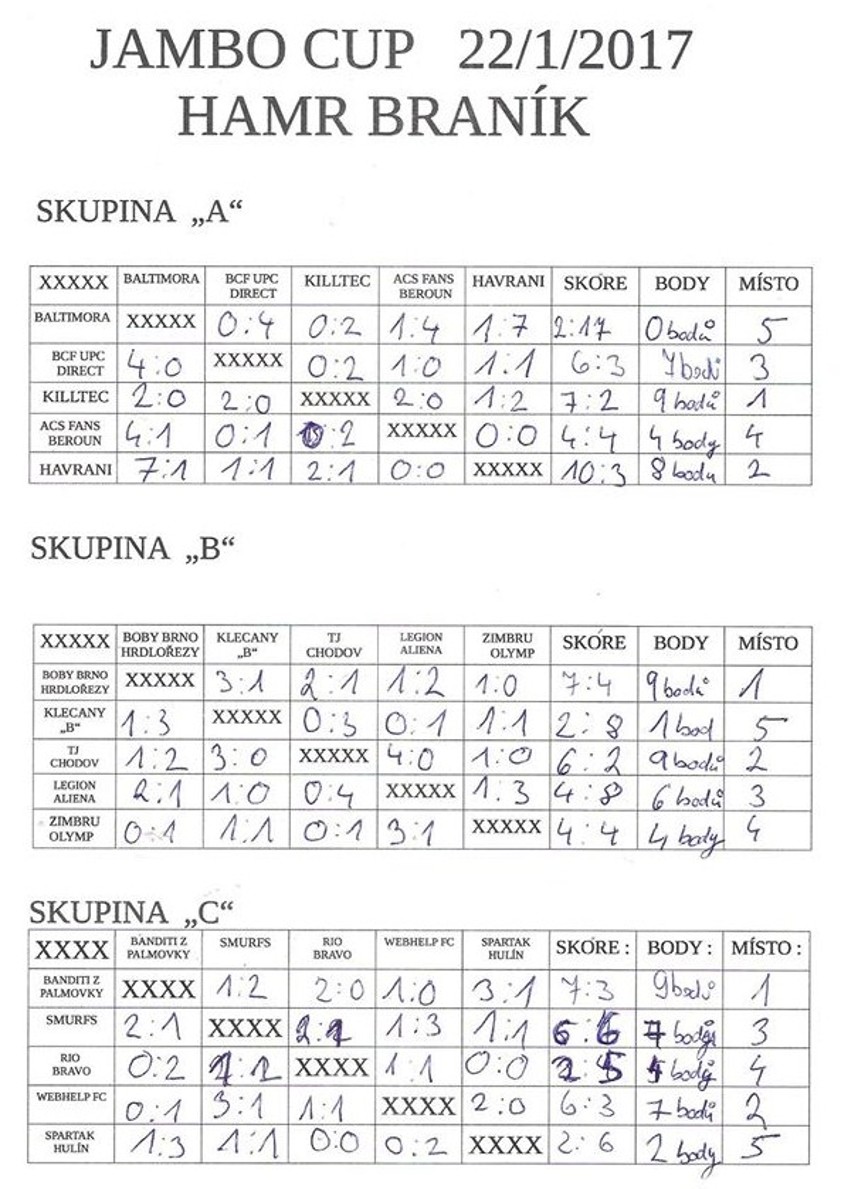 JAMBO CUP 22/1/2017
HAMR BRANÍK
SKUPINA „A“
XXXXX BALTIMORA BCF UPC DIRECT KILLTEC ACS FANS BEROUN HAVRANI SKÓRE BODY MÍSTO
BALTIMORA XXXXX 0:4 0:2 1:4 1:7 2:17 0 bodů 5
BCF UPC DIRECT 4:0 XXXXX 0:2 1:0 1:1 6:3 7 bodů 3
KILLTEC 2:0 2:0 XXXXX 2:0 1:2 7:2 9 bodů 1
ACS FANS BEROUN 4:1 0:1 0:2 XXXXX 0:0 4:4 4 body 4
HAVRANI 7:1 1:1 2:1 0:0 XXXXX 10:3 8 bodů 2
SKUPINA „B“
XXXXX BOBY BRNO HRDLOŘEZY KLECANY „B“ TJ CHODOV LEGION ALIENA ZIMBRU OLYMP SKÓRE BODY MÍSTO
BOBY BRNO HRDLOŘEZY XXXXX 3:1 2:1 1:2 1:0 7:4 9 bodů 1
KLECANY „B“ 1:3 XXXXX 0:3 0:1 1:1 2:8 1 bod 5
TJ CHODOV 1:2 3:0 XXXXX 4:0 1:0 6:2 9 bodů 2
LEGION ALIENA 2:1 1:0 0:4 XXXXX 1:3 4:8 6 bodů 3
ZIMBRU OLYMP 0:1 1:1 0:1 3:1 XXXXX 4:4 4 body 4
SKUPINA „C“
XXXX BANDITI Z PALMOVKY SMURFS RIO BRAVO WEBHELP FC SPARTAK HULÍN SKÓRE : BODY : MÍSTO :
BANDITI Z PALMOVKY XXXX 1:2 2:0 1:0 3:1 7:3 9 bodů 1
SMURFS 2:1 XXXX 1:3 1:1 6:6 7 bodů 3
RIO BRAVO 0:2 XXXX 1:1 0:0 4
WEBHELP FC 0:1 3:1 1:1 XXXX 2:0 6:3 7 bodů 2
SPARTAK HULÍN 1:3 1:1 0:0 0:2 XXXX 2:6 2 body 5